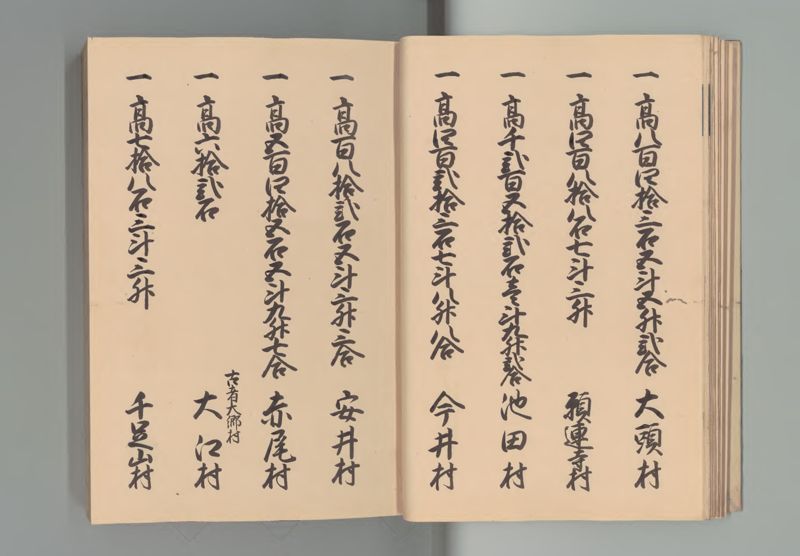 一 高八百四拾三石五斗五升弐合 大頭村
一 高四百八拾八石七斗三升 願連寺村
一 高千弐百五拾弐石壱斗九升弐合 池田村
一 高四百弐拾三石七斗八升八合 今井村
一 高百八拾弐石五斗三升三合 安井村
一 高五百四拾五石五斗九升七合 赤尾村
一 高六拾弐石 古者大郷村 大江村
一 高七拾八石三斗三升 千足山村